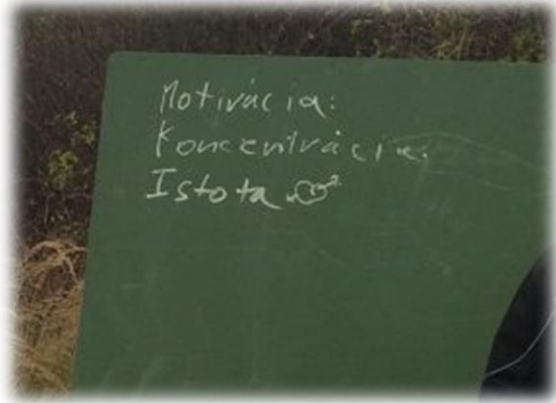 Motivácia:
Koncentrácia:
Istota